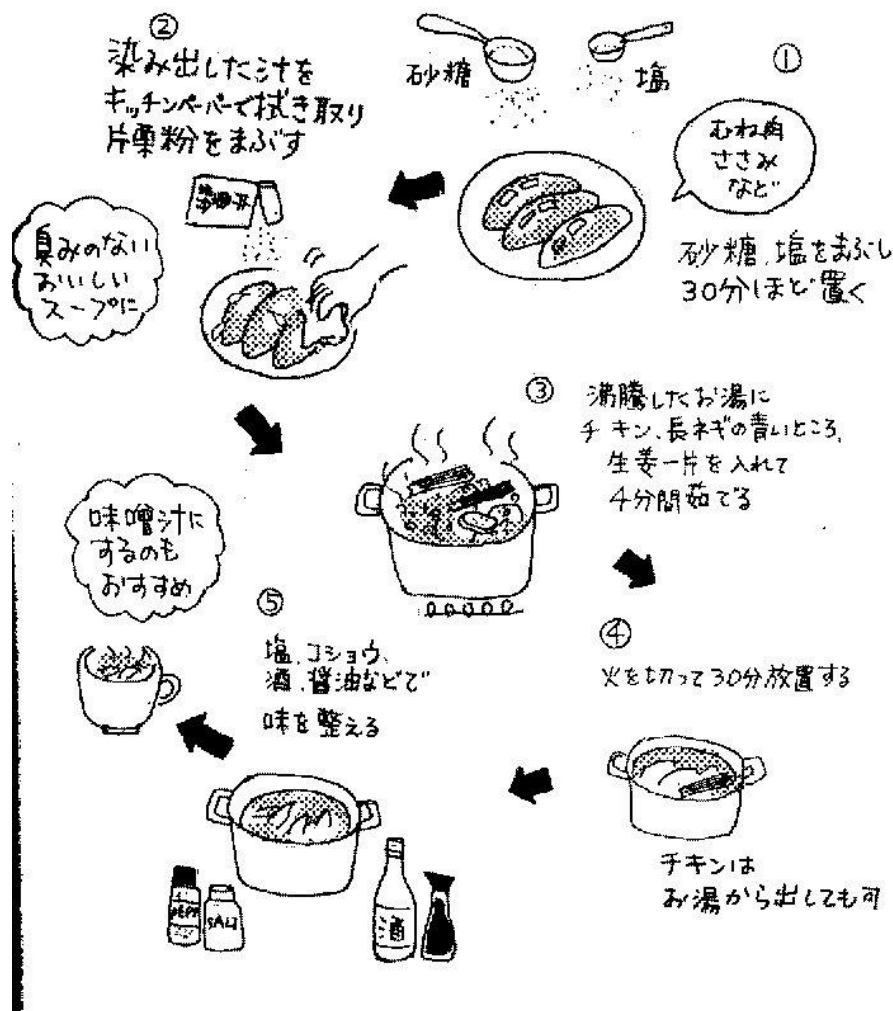 ①
砂糖
塩
むね肉
ささみ
など
砂糖、塩をまぶし
30分ほど置く
②
染み出した汁を
キッチンペーパーで拭き取り
片栗粉をまぶす
臭みのない
おいしい
スープに
③
沸騰したお湯に
チキン、長ネギの青いところ、
生姜一片を入れて
4分間茹でる
④
火を切って30分放置する
チキンは
お湯から出しても可
⑤
塩、コショウ、
酒、醤油などで
味を整える
SALT
酒
味噌汁に
するのも
おすすめ